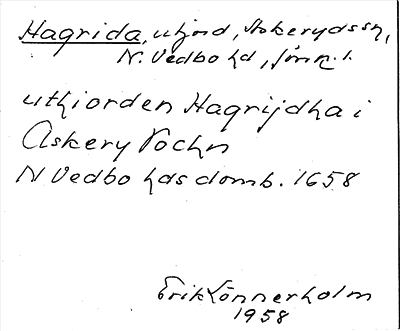 Hagrida, utjord, Askeryds sn,
N. Vedbo hd, Jönk. l.
uthiorden Hagrijdha i
Askery Sochn
N Vedbo hds domb. 1658
Erik Lönnerholm
1958